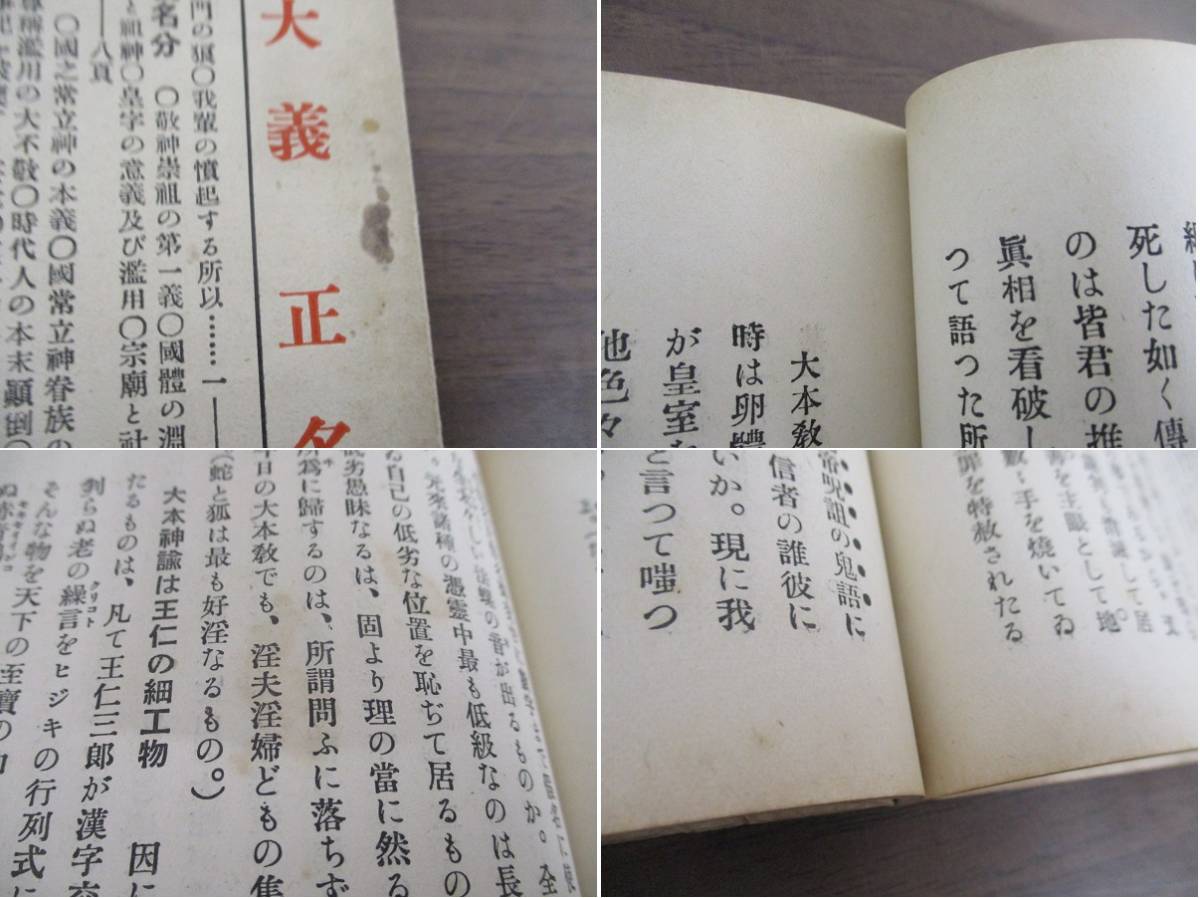 大義正名
門の狼〇我輩の憤起する所以……一
名分 〇敬神崇祖の第一義〇國體の淵
と祖神〇皇字の意義及び濫用〇宗廟と社
八頁
〇國之常立神の本義〇國常立神眷族の
尊稱濫用の大不敬〇時代人の本末顚倒〇
死した如く傳
のは皆君の推
眞相を看破し
つて語つた所
大本敎
時は卵體
が皇室を
他色々
音が出るものか。全
來諸種の憑靈中最も低級なのは長
る自己の低劣な位置を恥ぢて居るもの
低劣愚昧なるは、固より理の當に然る
所爲に歸するのは、所謂問ふに落ちず
今日の大本敎でも、淫夫淫婦どもの集
(蛇と狐は最も好淫なるもの。)
大本神諭は王仁の細工物 因に
たるものは、凡て王仁三郎が漢字交
判らぬ老の繰言をヒジキの行列式に
クリコト
そんな物を天下の至寶の
を主眼として地
手を燒いてゐ
罪を特赦されたる
呪詛の鬼語に
信者の誰彼に
いか。現に我
と言つて嗤つ